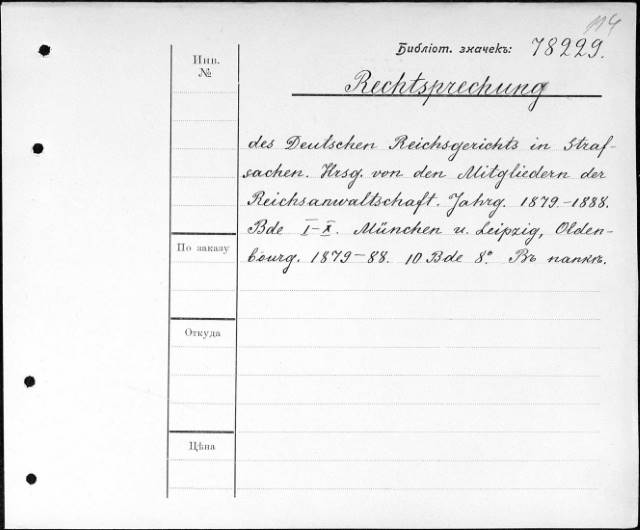 114
Библіот. значекъ: 78229.
Инв.
№
Rechtsprechung
des Deutschen Reichsgerichts in Straf-
sachen. Hrsg. von den Mitgliedern der
Reichsanwaltschaft. Jahrg. 1879.-1888.
Bde I-X. München u. Leipzig, Olden-
bourg. 1879-88. 10 Bde 8°. Въ папкѣ.
По заказу
Откуда
Цѣна